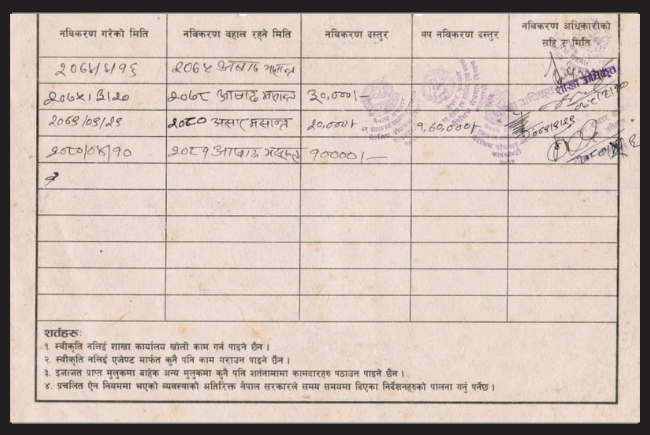 नविकरण गरेको मिति नविकरण बहाल रहने मिति नविकरण दस्तुर थप नविकरण दस्तुर नविकरण अधिकारीको
सहि र मिति
२०७५ असार मसान्त
२०७८ आषाढ मसान्त ३०,०००।-
२०८० असार मसान्त २०,०००।- १,६०,०००।-
२०८०/०४/१० २०८१ आषाढ मसान्त १००००।-
शर्तहरू:
१. स्वीकृति नलिई शाखा कार्यालय खोली काम गर्न पाइने छैन ।
२. स्वीकृति नलिई एजेण्ट मार्फत कुनै पनि काम गराउन पाइने छैन ।
३. इजाजत प्राप्त मुलुकमा बाहेक अन्य मुलुकमा कुनै पनि शर्तनामामा कामदारहरु पठाउन पाइने छैन ।
४. प्रचलित ऐन नियममा भएको व्यवस्थाको अतिरिक्त नेपाल सरकारले समय समयमा दिएका निर्देशनहरुको पालना गर्नु पर्नेछ ।